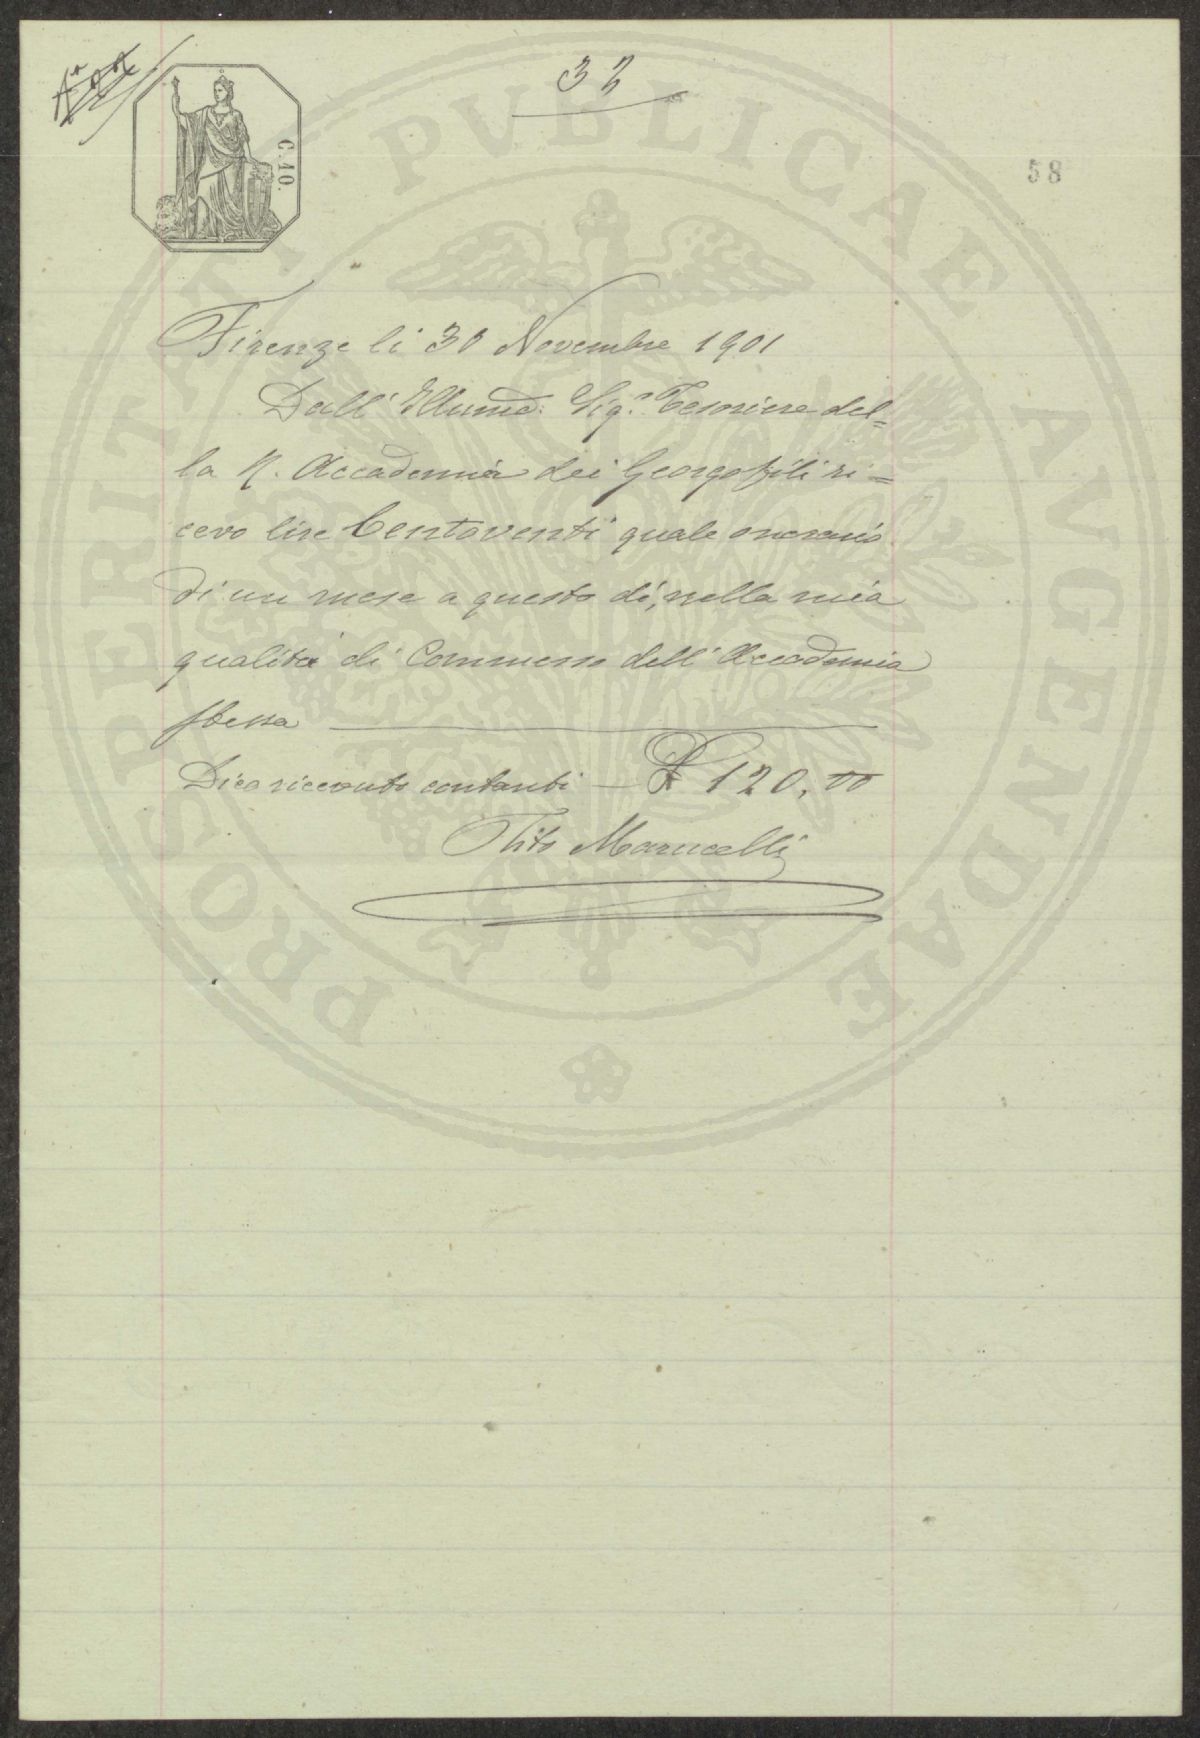 32
C. 10.
58
Firenze li 30 Novembre 1901
Dall' Illumo: Sigr. Tesoriere del=
la R. Accademia dei Georgofili ri=
cevo lire Centoventi quale onorario
di un mese a questo dì, nella mia
qualità di Commesso dell' Accademia
stessa
Dico ricevuto contanti — £ 120,00
Tito Marucelli
PROSPERITATI PVBLICAE AVGENDAE